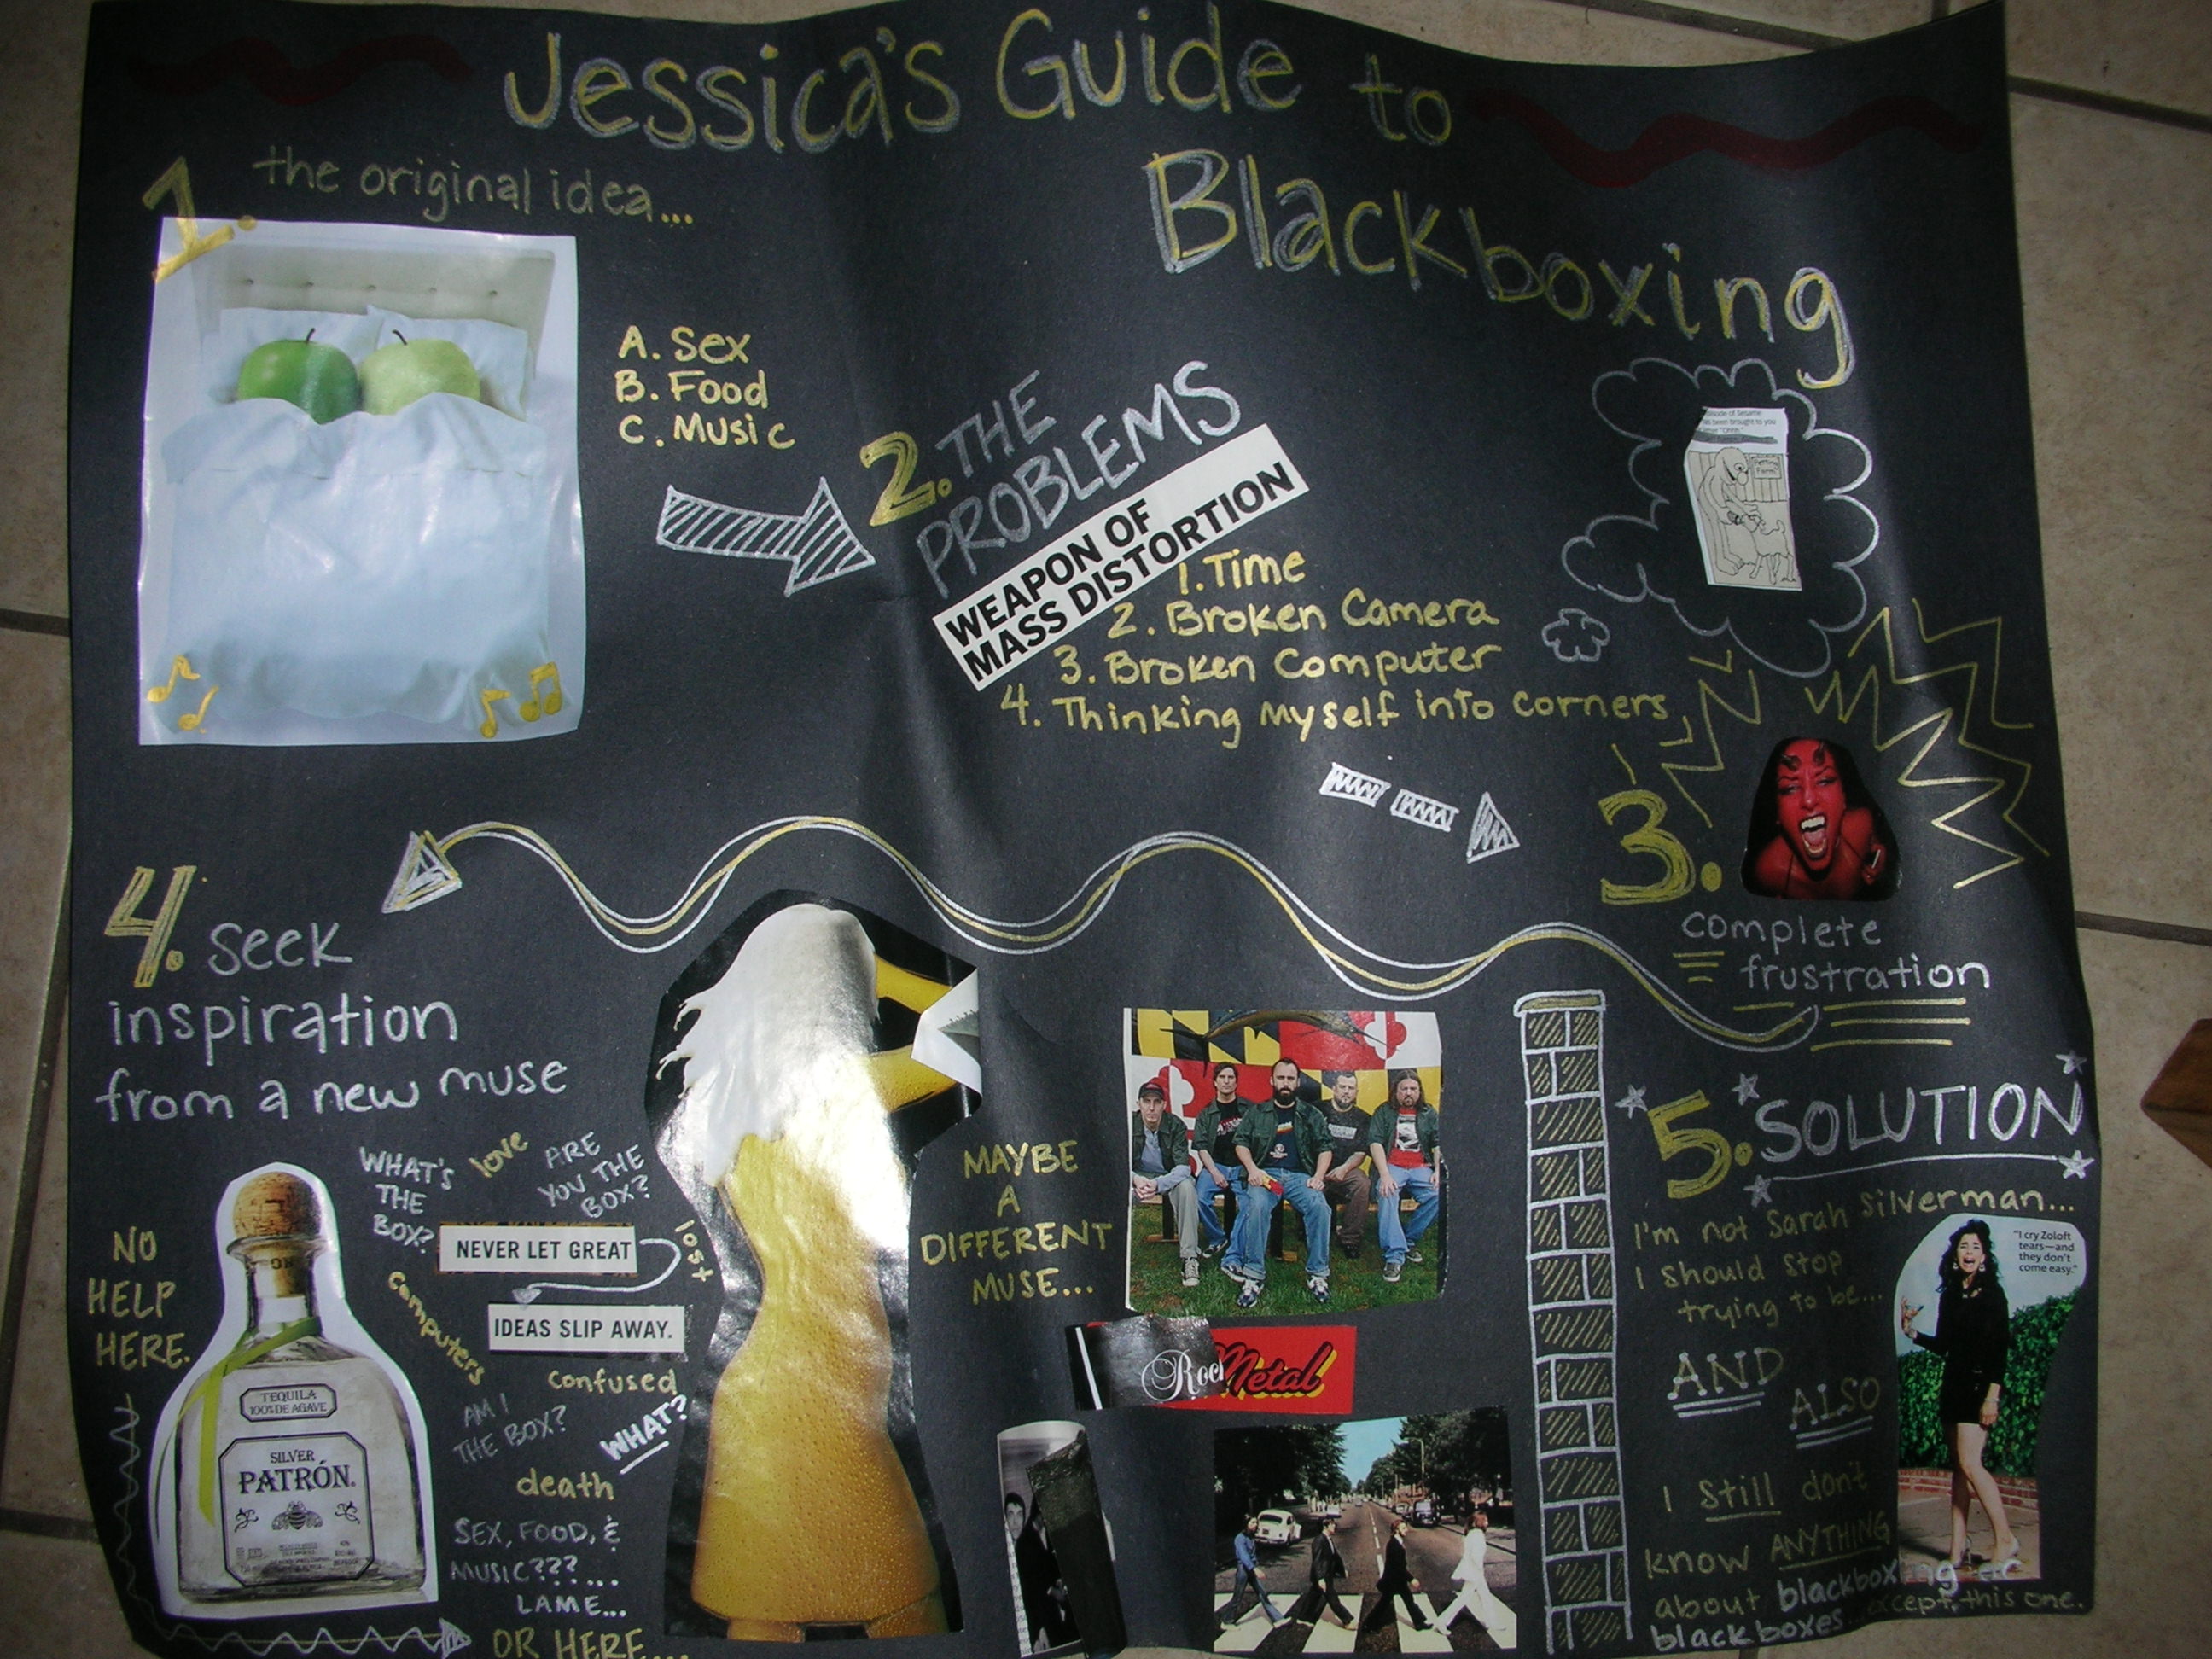 Jessica's Guide to
Blackboxing
1. the original idea...
A. Sex
B. Food
C. Music
2. THE
PROBLEMS
WEAPON OF
MASS DISTORTION
1. Time
2. Broken Camera
3. Broken Computer
4. Thinking myself into corners
3.
complete
frustration
4. seek
inspiration
from a new muse
NO
HELP
HERE.
TEQUILA
100% DE AGAVE
SILVER
PATRÓN
WHAT'S
THE
BOX?
love
ARE
YOU THE
BOX?
NEVER LET GREAT
lost
IDEAS SLIP AWAY.
computers
confused
AM I
THE BOX?
WHAT?
death
SEX, FOOD, &
MUSIC???...
LAME...
OR HERE....
MAYBE
A
DIFFERENT
MUSE...
Rock
Metal
5. SOLUTION
I'm not Sarah Silverman...
I should stop
trying to be...
"I cry Zoloft
tears—and
they don't
come easy."
AND
ALSO
I still don't
know ANYTHING
about blackboxing or
blackboxes... except, this one.